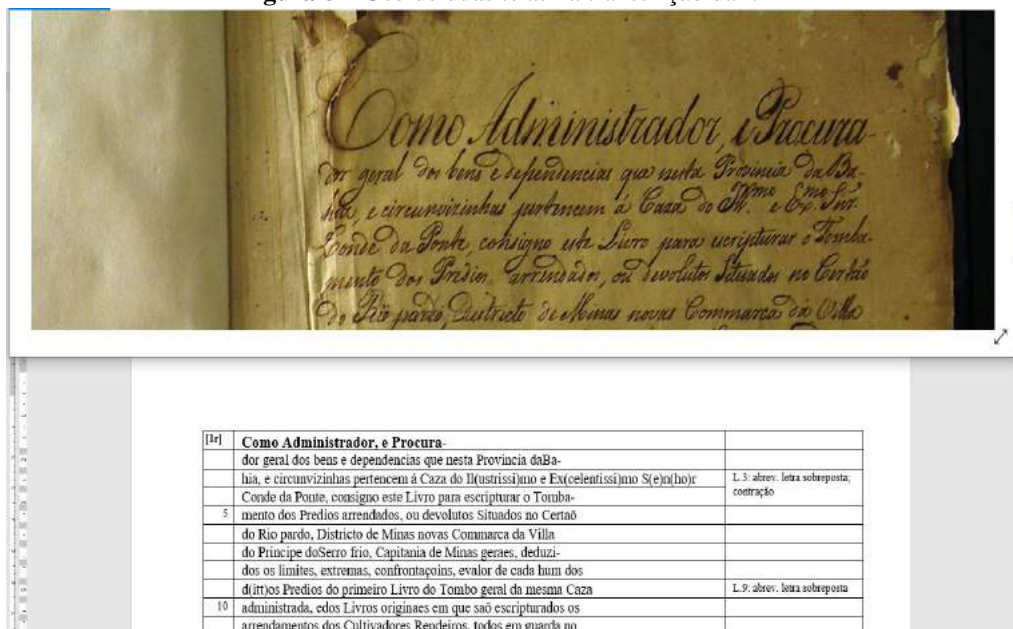 Como Administrador, e Procura-
dor geral dos bens e dependencias que nesta Provincia da Ba-
hia, e circunvizinhas pertencem á Caza do Ill.mo e Ex.mo Snr.
Conde da Ponte, consigno este Livro para escripturar o Tomba-
mento dos Predios arrendados, ou devolutos Situados no Certaõ
do Rio pardo, Districto de Minas novas Commarca da Villa
[1r] Como Administrador, e Procura-
dor geral dos bens e dependencias que nesta Provincia daBa-
hia, e circunvizinhas pertencem á Caza do Il(ustrissi)mo e Ex(celentissi)mo S(e)n(ho)r L.3: abrev. letra sobreposta; contração
Conde da Ponte, consigno este Livro para escripturar o Tomba-
5 mento dos Predios arrendados, ou devolutos Situados no Certaõ
do Rio pardo, Districto de Minas novas Commarca da Villa
do Principe doSerro frio, Capitania de Minas geraes, deduzi-
dos os limites, extremas, confrontaçoins, evalor de cada hum dos
d(itt)os Predios do primeiro Livro do Tombo geral da mesma Caza L.9: abrev. letra sobreposta
10 administrada, edos Livros originaes em que saõ escripturados os
arrendamentos dos Cultivadores Rendeiros, todos em guarda no